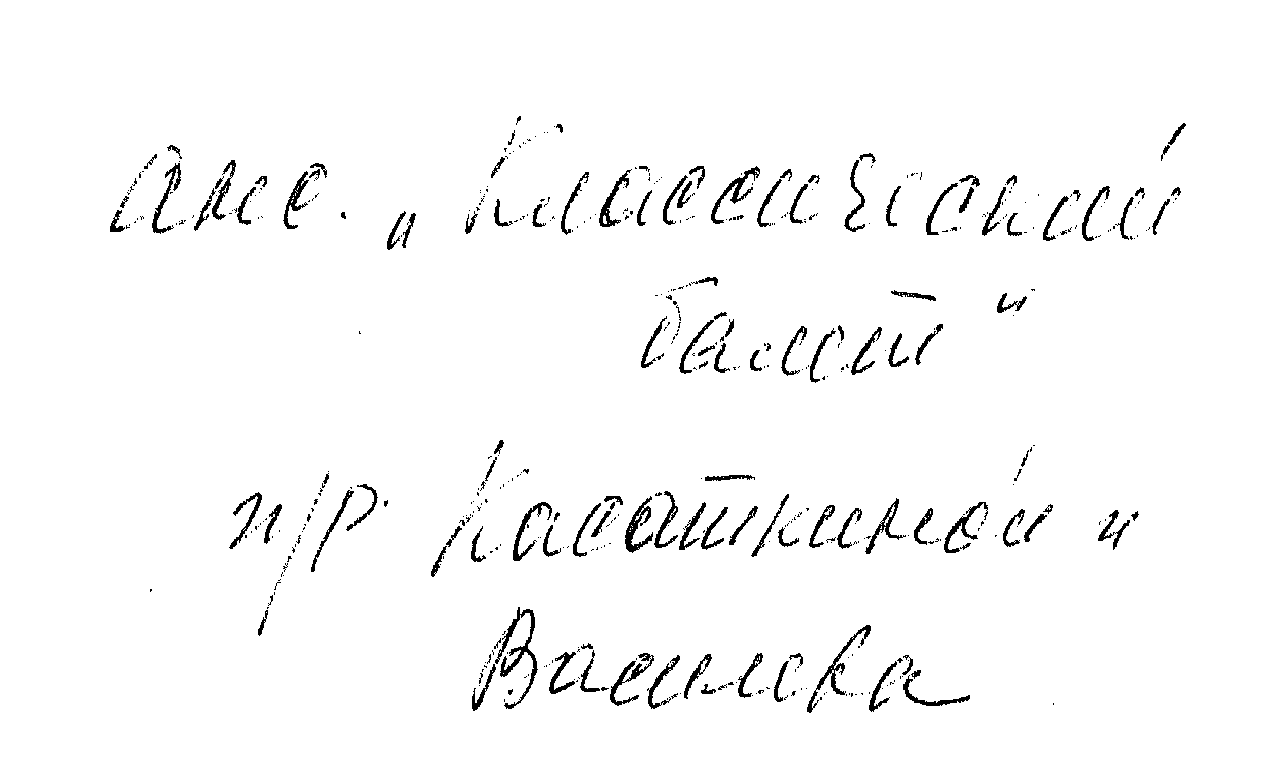 анс. „Классический
балет"
п/р. Касаткиной и
Василева